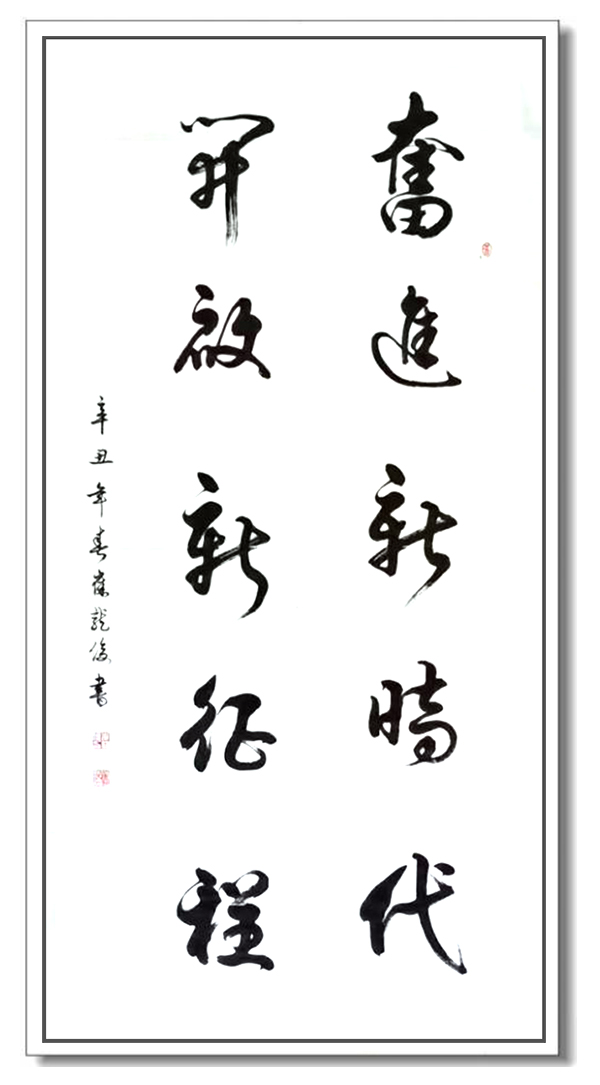 奮進新時代
開啟新征程
辛丑年春 龍俊書